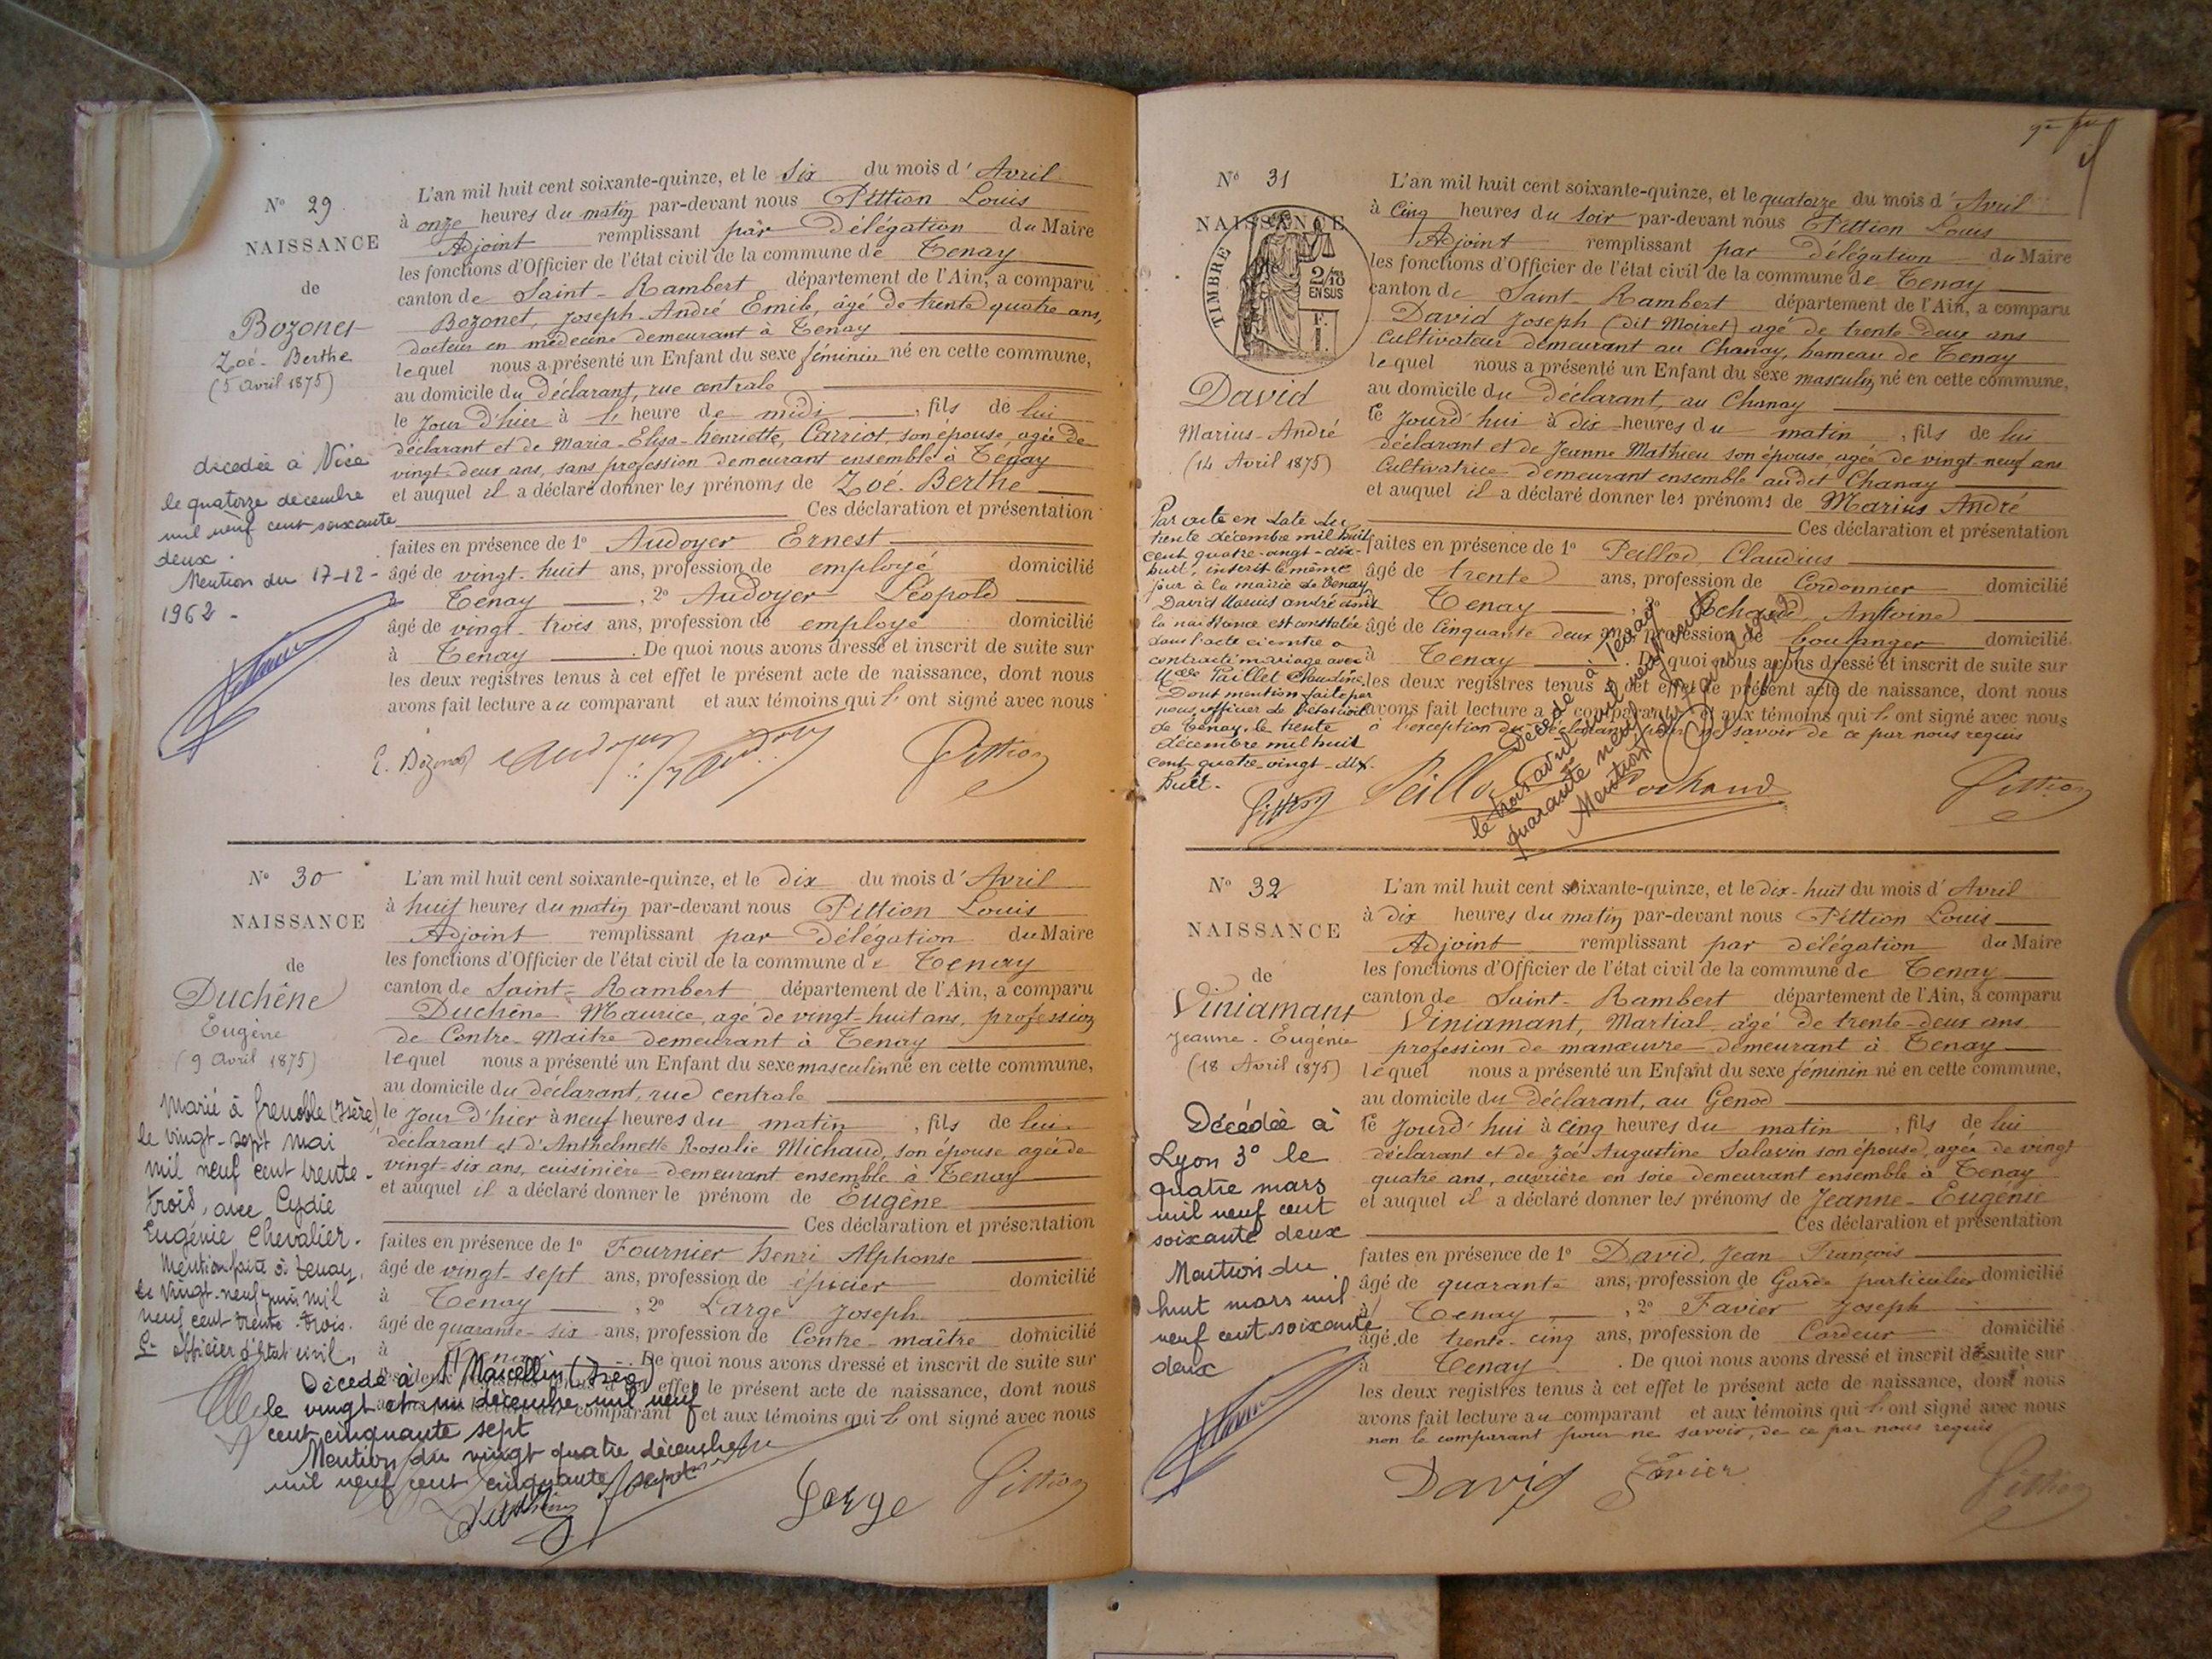 N° 29
NAISSANCE
de
Bozonet
Zoé-Berthe
(5 Avril 1875)
décédée à Nice
le quatorze décembre
mil neuf cent soixante
deux.
Mention du 17-12-
1962-
L'an mil huit cent soixante-quinze, et le six du mois d'Avril
à onze heures du matin par-devant nous Pittion Louis
Adjoint remplissant par délégation du Maire
les fonctions d'Officier de l'état civil de la commune de Tenay
canton de Saint-Rambert département de l'Ain, a comparu
Bozonet, Joseph-André Emile, âgé de trente quatre ans,
docteur en médecine demeurant à Tenay
lequel nous a présenté un Enfant du sexe féminin né en cette commune,
au domicile du déclarant, rue centrale
le jour d'hier à l' heure de midi, fils de lui
déclarant et de Maria-Elisa-henriette, Carriot, son épouse, agée de
vingt-deux ans, sans profession demeurant ensemble à Tenay
et auquel il a déclaré donner les prénoms de Zoé-Berthe
Ces déclaration et présentation
faites en présence de 1° Audoyer Ernest
âgé de vingt-huit ans, profession de employé domicilié
à Tenay, 2° Audoyer Léopold
âgé de vingt-trois ans, profession de employé domicilié
à Tenay. De quoi nous avons dressé et inscrit de suite sur
les deux registres tenus à cet effet le présent acte de naissance, dont nous
avons fait lecture au comparant et aux témoins qui l'ont signé avec nous
E. Bozonet Pittion
N° 30
NAISSANCE
de
Duchêne
Eugène
(9 Avril 1875)
Marié à Grenoble (Isère),
le vingt-sept mai
mil neuf cent trente-
trois, avec Lydie
Eugénie Chevalier.
Mention faite à Tenay,
le vingt-neuf juin mil
neuf cent trente-trois.
L' officier d'état civil,
L'an mil huit cent soixante-quinze, et le dix du mois d'Avril
à huit heures du matin par-devant nous Pittion Louis
Adjoint remplissant par délégation du Maire
les fonctions d'Officier de l'état civil de la commune de Tenay
canton de Saint-Rambert département de l'Ain, a comparu
Duchêne Maurice, agé de vingt-huit ans, profession
de Contre-Maitre demeurant à Tenay
lequel nous a présenté un Enfant du sexe masculin né en cette commune,
au domicile du déclarant, rue centrale
le jour d'hier à neuf heures du matin, fils de lui
déclarant et d'Anthelmette Rosalie Michaud, son épouse agée de
vingt-six ans, cuisinière demeurant ensemble à Tenay
et auquel il a déclaré donner le prénom de Eugène
Ces déclaration et présentation
faites en présence de 1° Fournier henri Alphonse
âgé de vingt-sept ans, profession de épicier domicilié
à Tenay, 2° Large Joseph
âgé de quarante-six ans, profession de Contre-maître domicilié
à Tenay. De quoi nous avons dressé et inscrit de suite sur
les deux registres tenus à cet effet le présent acte de naissance, dont nous
avons fait lecture au comparant et aux témoins qui l'ont signé avec nous
Décédé à St Marcellin (Isère)
le vingt et un décembre mil neuf
cent cinquante sept
Mention du vingt quatre décembre
mil neuf cent cinquante sept
Large Pittion
N° 31
NAISSANCE
TIMBRE
2/10
EN SUS
David
Marius-André
(14 Avril 1875)
Par acte en date du
trente décembre mil huit
cent quatre-vingt-dix-
huit, inscrit le même
jour à la mairie de Tenay
David Marius André dont
la naissance est constatée
dans l'acte ci-contre a
contracté mariage avec
Melle Paillet Claudine
Dont mention faite par
nous officier de l'état civil
de Tenay, le trente
décembre mil huit
cent quatre-vingt-dix-
huit.
Pittion
L'an mil huit cent soixante-quinze, et le quatorze du mois d'Avril
à Cinq heures du soir par-devant nous Pittion Louis
Adjoint remplissant par délégation du Maire
les fonctions d'Officier de l'état civil de la commune de Tenay
canton de Saint-Rambert département de l'Ain, a comparu
David Joseph (dit Moiret) agé de trente-deux ans
cultivateur demeurant au Chanay, hameau de Tenay
lequel nous a présenté un Enfant du sexe masculin né en cette commune,
au domicile du déclarant, au Chanay
le jourd'hui à dix heures du matin, fils de lui
déclarant et de Jeanne Mathieu son épouse, agée de vingt-neuf ans
Cultivatrice demeurant ensemble audit Chanay
et auquel il a déclaré donner les prénoms de Marius André
Ces déclaration et présentation
faites en présence de 1° Peillod, Claudius
âgé de trente ans, profession de Cordonnier domicilié
à Tenay, 2° Cochard, Antoine
âgé de Cinquante deux ans, profession de boulanger domicilié
à Tenay. De quoi nous avons dressé et inscrit de suite sur
les deux registres tenus à cet effet le présent acte de naissance, dont nous
avons fait lecture au comparant et aux témoins qui l'ont signé avec nous
à l'exception du déclarant pour ne savoir de ce par nous requis
Décédé à Tenay
le trois avril mil neuf cent
quarante neuf
Mention du
Peillod Cochard Pittion
N° 32
NAISSANCE
de
Viniamant
Jeanne-Eugénie
(18 Avril 1875)
Décédée à
Lyon 3° le
quatre mars
mil neuf cent
soixante deux
Mention du
huit mars mil
neuf cent soixante
deux
L'an mil huit cent soixante-quinze, et le dix-huit du mois d'Avril
à dix heures du matin par-devant nous Pittion Louis
Adjoint remplissant par délégation du Maire
les fonctions d'Officier de l'état civil de la commune de Tenay
canton de Saint-Rambert département de l'Ain, a comparu
Viniamant, Martial, âgé de trente-deux ans
profession de manœuvre demeurant à Tenay
lequel nous a présenté un Enfant du sexe féminin né en cette commune,
au domicile du déclarant, au Genod
le jourd'hui à cinq heures du matin, fils de lui
déclarant et de Zoé Augustine Salavin son épouse, agée de vingt
quatre ans, ouvrière en soie demeurant ensemble à Tenay
et auquel il a déclaré donner les prénoms de Jeanne-Eugénie
Ces déclaration et présentation
faites en présence de 1° David, Jean François
âgé de quarante ans, profession de Garde particulier domicilié
à Tenay, 2° Favier Joseph
âgé de trente-cinq ans, profession de Cardeur domicilié
à Tenay. De quoi nous avons dressé et inscrit de suite sur
les deux registres tenus à cet effet le présent acte de naissance, dont nous
avons fait lecture au comparant et aux témoins qui l'ont signé avec nous
non le comparant pour ne savoir, de ce par nous requis
David Favier Pittion